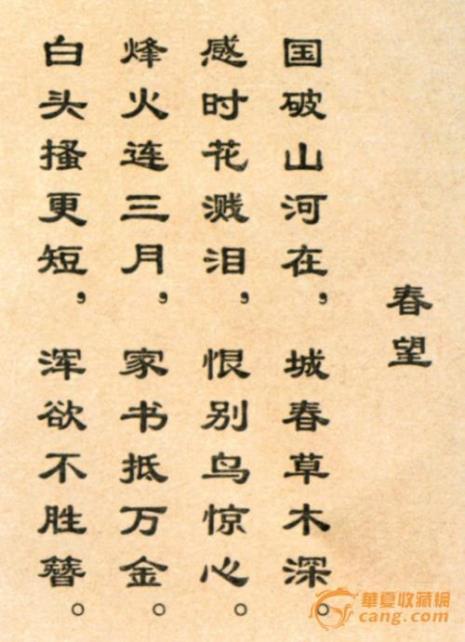 春望
国破山河在，城春草木深。
感时花溅泪，恨别鸟惊心。
烽火连三月，家书抵万金。
白头搔更短，浑欲不胜簪。
華夏收藏網
cang.com